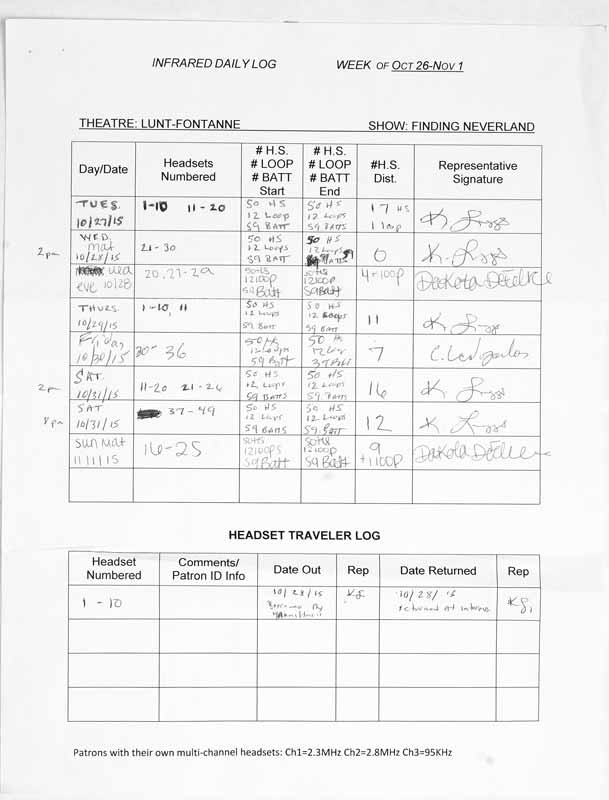 INFRARED DAILY LOG WEEK OF OCT 26-NOV 1
THEATRE: LUNT-FONTANNE SHOW: FINDING NEVERLAND
Day/Date Headsets Numbered # H.S. # LOOP # BATT Start # H.S. # LOOP # BATT End #H.S. Dist. Representative Signature
TUES. 10/27/15 1-10 11-20 50 HS 12 Loop 59 BATT 50 HS 12 Loops 59 BATT 17 HS 1 loop
2pm WED. mat 10/28/15 21-30 50 HS 12 Loops 59 BATT 50 HS 12 Loops BATTS 0
Wed eve 10/28 20,27-29 50HS 12loop 59Batt 50HS 12loop 59Batt 4+loop Dakota
THURS. 10/29/15 1-10, 11 50 HS 12 Loops 59 BATT 50 HS 12 Loops 59 BATT 11
Friday 10/30/15 30-36 50 HS 12 Loops 59 BATT 50 H 12 7
2pm SAT. 10/31/15 11-20 21-26 50 HS 12 Loops 59 BATTS 50 HS 12 Loops 59 BATT 16
8pm SAT 10/31/15 37-49 50 HS 12 Loops 59 BATTS 50 HS 12 Loops 59 BATT 12
Sun Mat 11/1/15 16-25 50HS 12loops 59Batt 50HS 12loop 59Batt 9 +1loop Dakota
HEADSET TRAVELER LOG
Headset Numbered Comments/ Patron ID Info Date Out Rep Date Returned Rep
1 - 10 10/28/15 Borrowed By 10/28/15 returned at
Patrons with their own multi-channel headsets: Ch1=2.3MHz Ch2=2.8MHz Ch3=95KHz